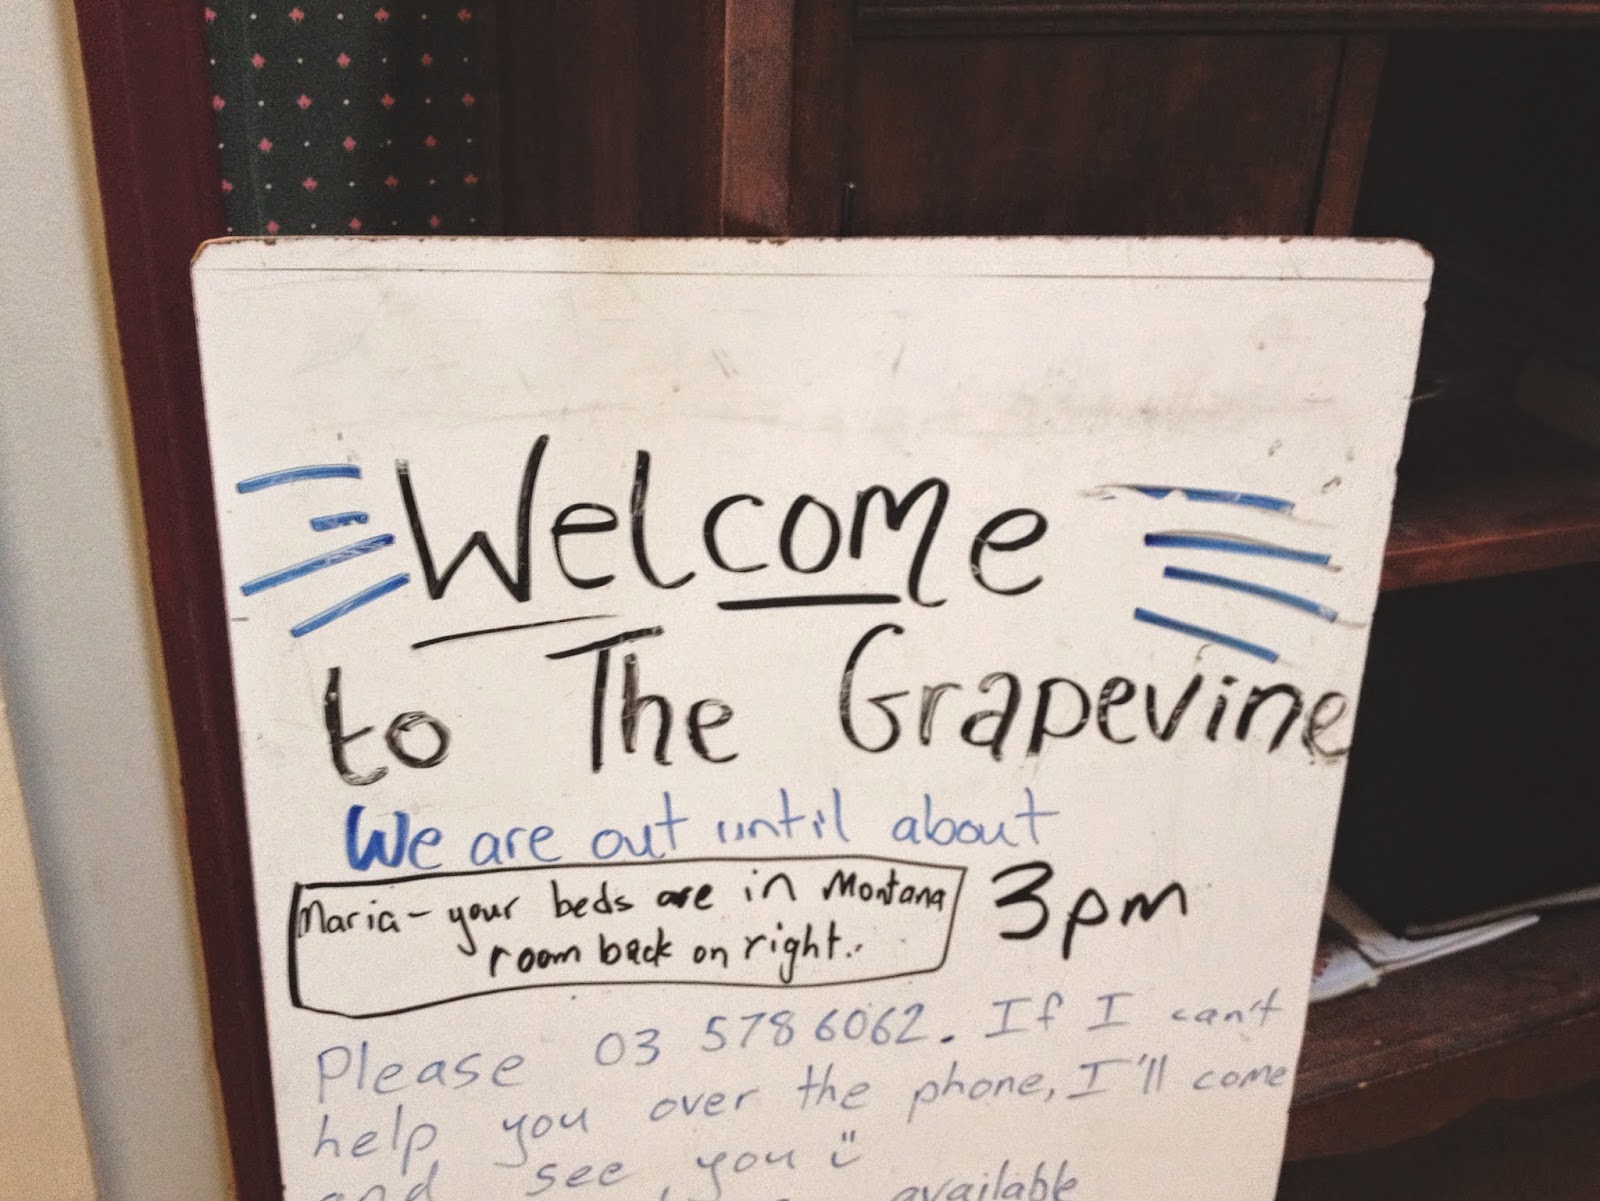 Welcome
to The Grapevine
We are out until about
3pm
Maria - your beds are in Montana
room back on right..
Please 03 578 6062. If I can't
help you over the phone, I'll come
and see you
available